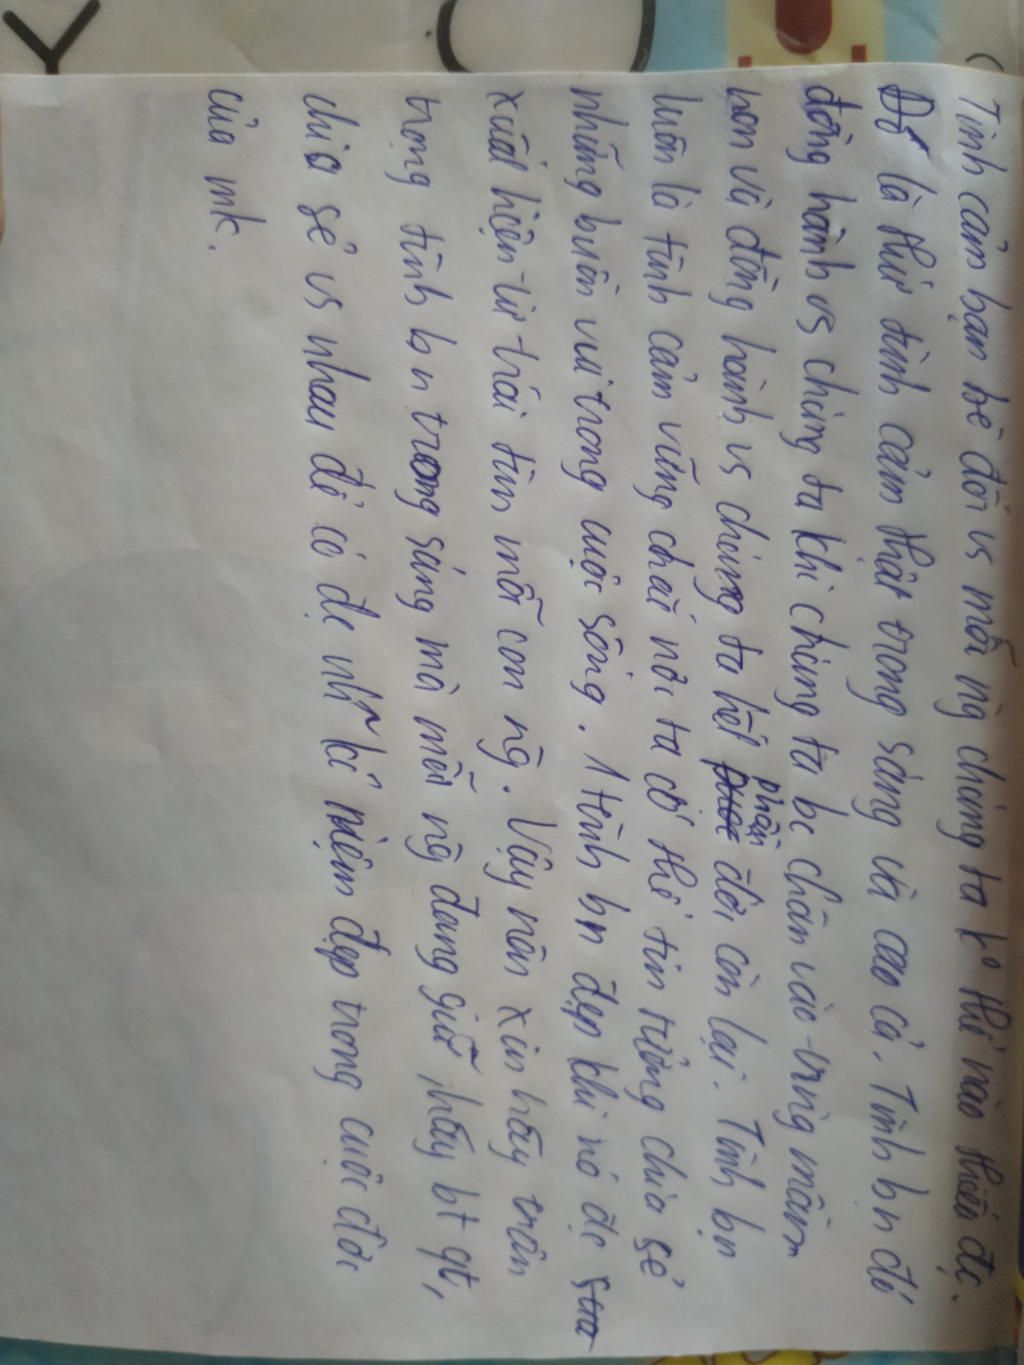 Tình cảm bạn bè đối vs mỗi ng chúng ta ko thể nào thiếu đc.
Đó là thứ tình cảm thật trong sáng và cao cả. Tình bạn đó
đồng hành vs chúng ta khi chúng ta bc chân vào trường mầm
non và đồng hành vs chúng ta hết phần đời còn lại. Tình bạn
luôn là tình cảm vững chắc nơi ta có thể tin tưởng chia sẻ
những buồn vui trong cuộc sống. 1 tình bn đẹp khi nó đc
xuất hiện từ trái tim mỗi con ng. Vậy nên xin hãy trân
trọng tình bn trong sáng mà mỗi ng đang giữ, hãy bt qt,
chia sẻ vs nhau để có đc nh~ kỉ niệm đẹp trong cuộc đời
của mk.